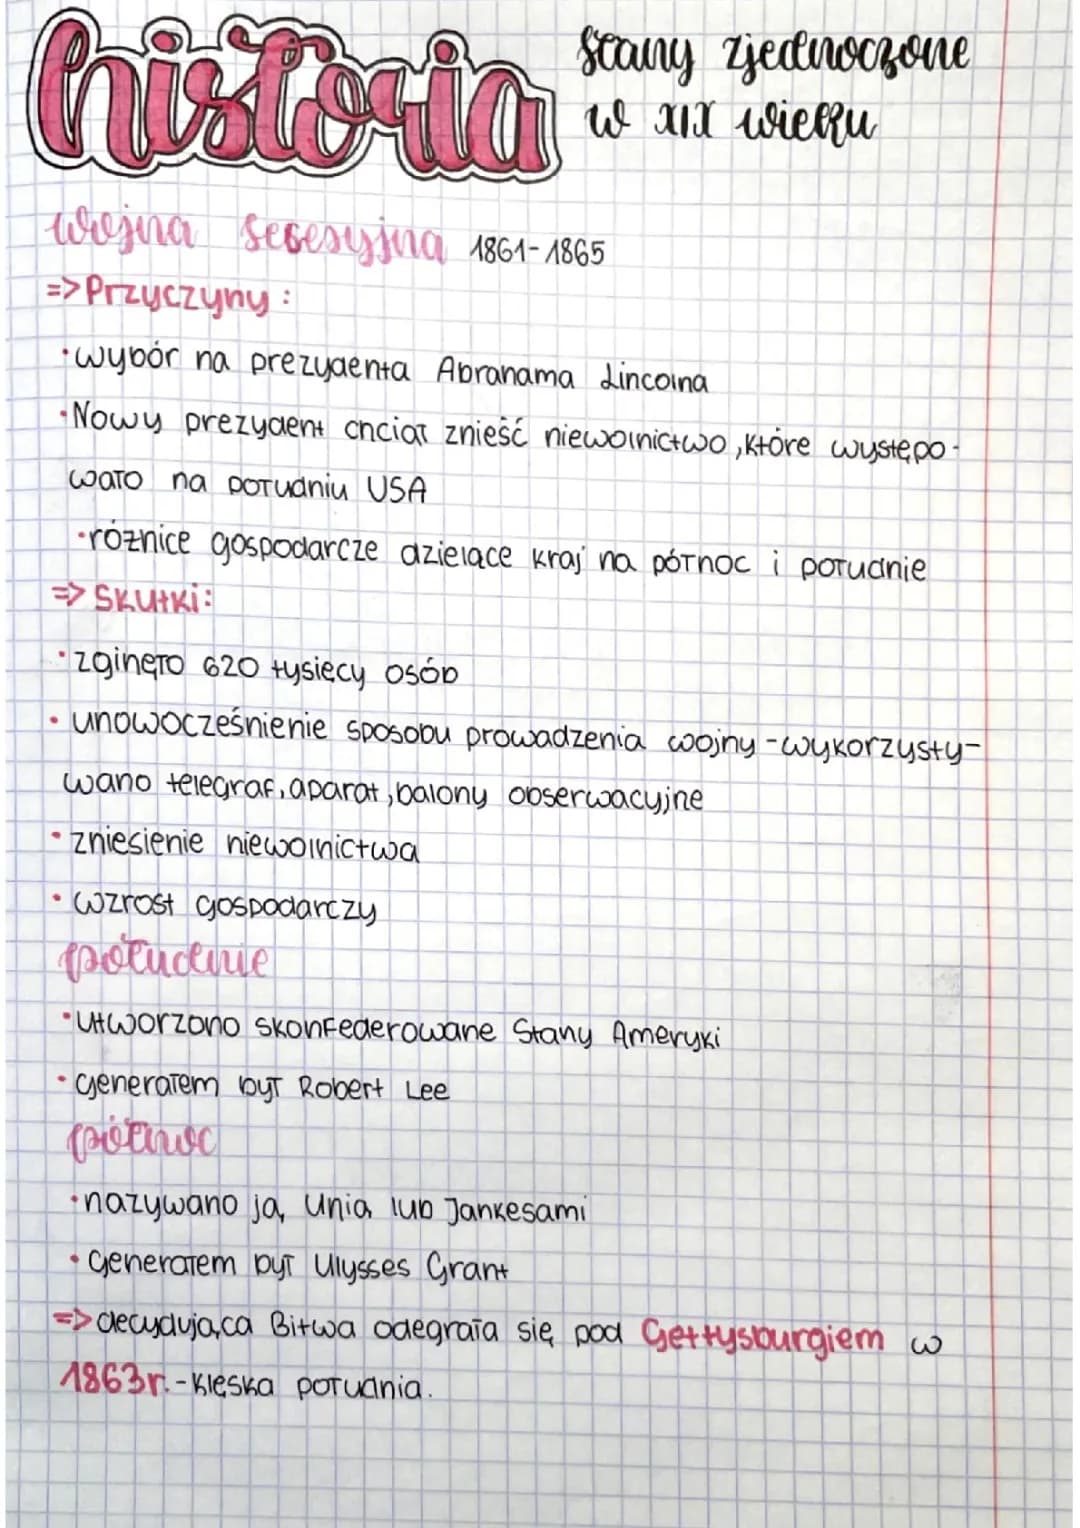 historia
Stany zjednoczone
w XIX wieku
wojna secesyjna 1861-1865
=> Przyczyny:
•wybór na prezydenta Abrahama Lincolna
•Nowy prezydent chciał znieść niewolnictwo, które występo-
wało na południu USA
•różnice gospodarcze dzielące kraj na północ i południe
=> Skutki:
•zginęło 620 tysięcy osób
•unowocześnienie sposobu prowadzenia wojny - wykorzysty-
wano telegraf, aparat, balony obserwacyjne
•zniesienie niewolnictwa
•wzrost gospodarczy
południe
•utworzono skonfederowane Stany Ameryki
•generałem był Robert Lee
północ
•nazywano ją Unią lub Jankesami
•Generałem był Ulysses Grant
=> decydująca Bitwa odegrała się pod Gettysburgiem w
1863r. - klęska południa.